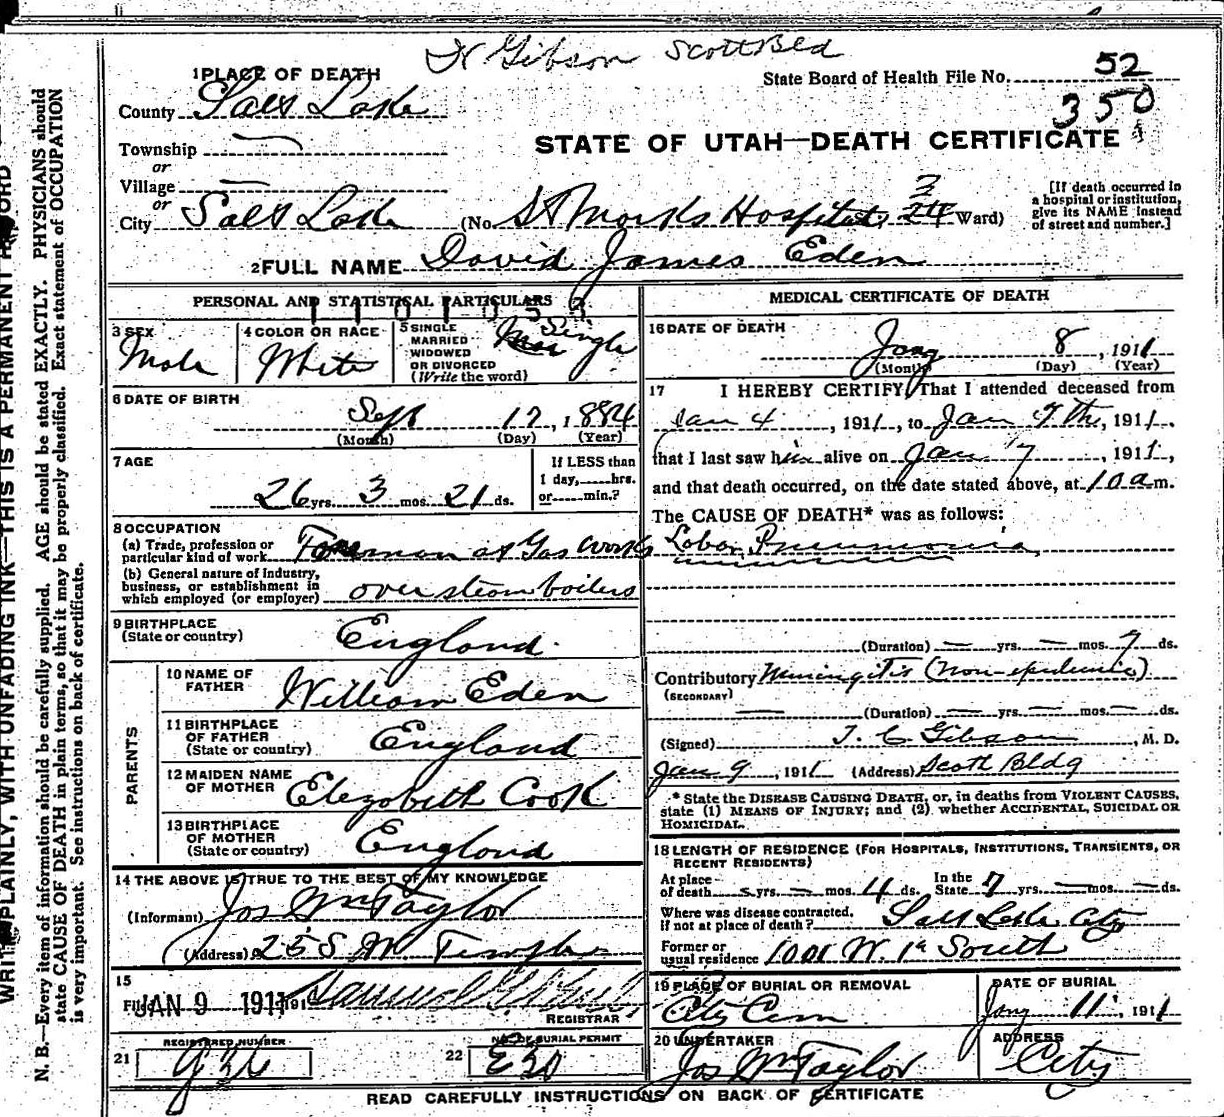 Dr Gibson Scott Bld
1 PLACE OF DEATH
State Board of Health File No. 52
350
County Salt Lake
STATE OF UTAH—DEATH CERTIFICATE
Township
or
Village
or
City Salt Lake (No. St Marks Hospital, 3 24 Ward)
[If death occurred in
a hospital or institution,
give its NAME instead
of street and number.]
2 FULL NAME David James Eden
PERSONAL AND STATISTICAL PARTICULARS
3 SEX
Male
4 COLOR OR RACE
White
5 SINGLE
MARRIED
WIDOWED
OR DIVORCED
(Write the word)
Single
6 DATE OF BIRTH
Sept 17, 1884
(Month) (Day) (Year)
7 AGE
26 yrs. 3 mos. 21 ds.
If LESS than
1 day, hrs.
or min.?
8 OCCUPATION
(a) Trade, profession or
particular kind of work Foreman at Gas Works
(b) General nature of industry,
business, or establishment in
which employed (or employer) over steam boilers
9 BIRTHPLACE
(State or country) England.
PARENTS
10 NAME OF
FATHER William Eden
11 BIRTHPLACE
OF FATHER
(State or country) England
12 MAIDEN NAME
OF MOTHER Elezabeth Cook
13 BIRTHPLACE
OF MOTHER
(State or country) England
14 THE ABOVE IS TRUE TO THE BEST OF MY KNOWLEDGE
(Informant) Jos Wm Taylor
(Address) 25 S W Temple
15
Filed JAN 9 1911 191
REGISTRAR
REGISTERED NUMBER
21
NO. OF BURIAL PERMIT
22 E30
MEDICAL CERTIFICATE OF DEATH
16 DATE OF DEATH
Jany 8, 1911
(Month) (Day) (Year)
17 I HEREBY CERTIFY, That I attended deceased from
Jan 4, 1911, to Jan 7th, 1911,
that I last saw him alive on Jan 7, 1911,
and that death occurred, on the date stated above, at 10 a m.
The CAUSE OF DEATH* was as follows:
Lobar Pneumonia
(Duration) — yrs. — mos. 7 ds.
Contributory Meningitis (non-epidemic)
(SECONDARY)
(Duration) — yrs. — mos. — ds.
(Signed) T. C. Gibson, M. D.
Jan 9, 1911 (Address) Scott Bldg
* State the DISEASE CAUSING DEATH, or, in deaths from VIOLENT CAUSES,
state (1) MEANS OF INJURY; and (2) whether ACCIDENTAL, SUICIDAL OR
HOMICIDAL.
18 LENGTH OF RESIDENCE (FOR HOSPITALS, INSTITUTIONS, TRANSIENTS, OR
RECENT RESIDENTS)
At place
of death — yrs. — mos. 4 ds. In the
State 7 yrs. — mos. — ds.
Where was disease contracted,
if not at place of death? Salt Lake City
Former or
usual residence 1001 W. 1st South
19 PLACE OF BURIAL OR REMOVAL
City Cem
DATE OF BURIAL
Jany 11, 1911
20 UNDERTAKER
Jos Wm Taylor
ADDRESS
City
READ CAREFULLY INSTRUCTIONS ON BACK OF CERTIFICATE
WRITE PLAINLY, WITH UNFADING INK—THIS IS A PERMANENT RECORD
N. B.—Every item of information should be carefully supplied. AGE should be stated EXACTLY. PHYSICIANS should
state CAUSE OF DEATH in plain terms, so that it may be properly classified. Exact statement of OCCUPATION
is very important. See instructions on back of certificate.